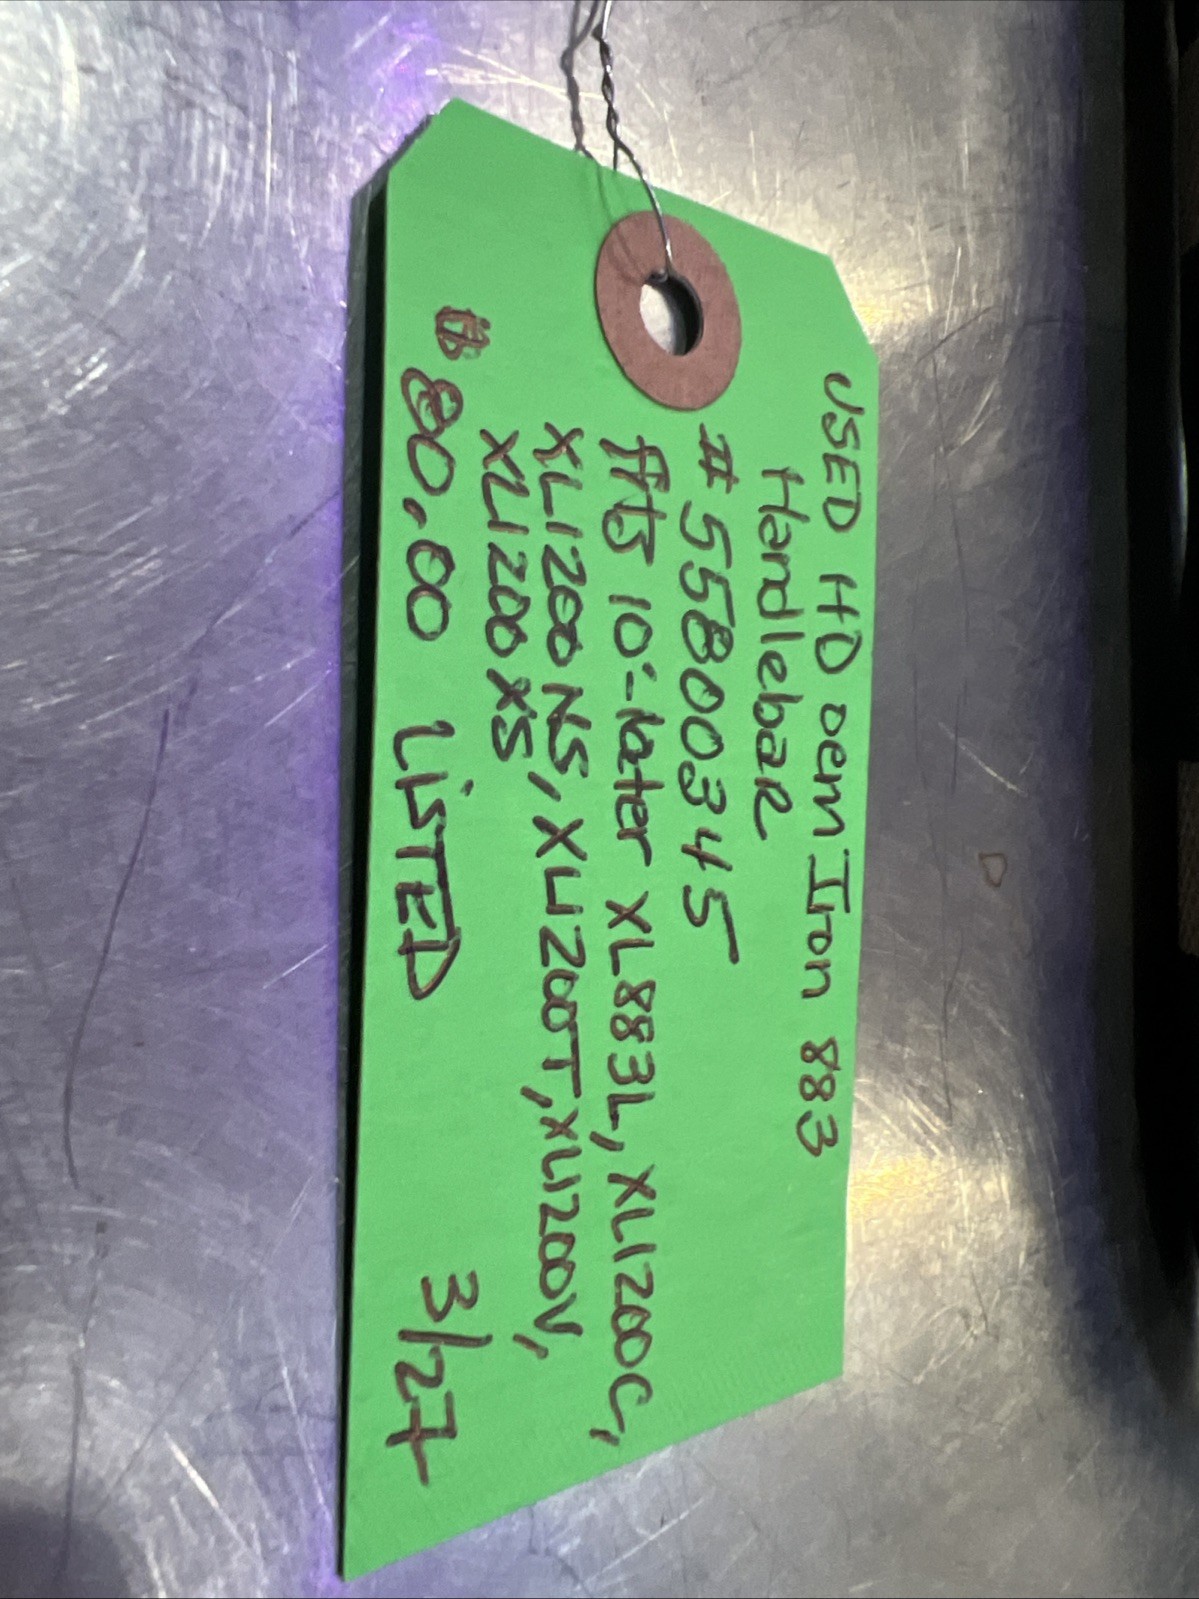 USED HD oem Iron 883
Handlebar
# 55800345
fits 10-later XL883L, XL1200C,
XL1200NS, XL1200T, XL1200V,
XL1200XS
$80.00 LiSTED 3/27